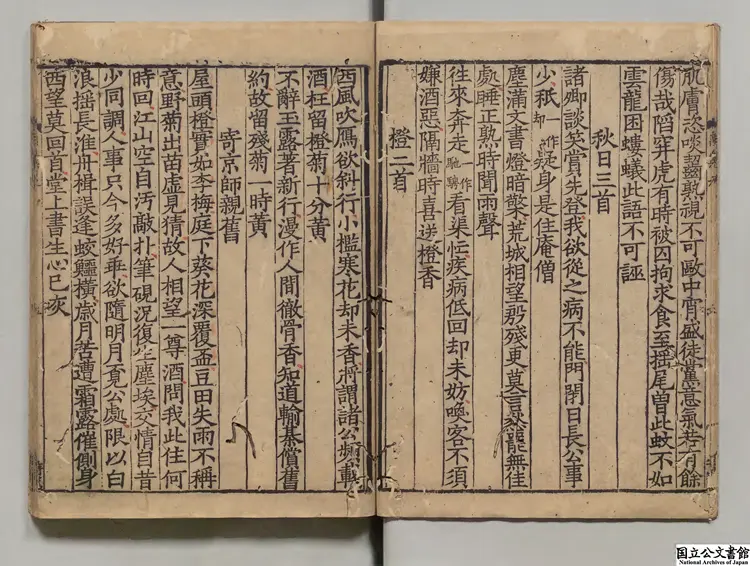 肌膚恣啖齧熟視不可歐中宵盛徒黨意氣若有餘
傷哉陷穽虎有時被囚拘求食至搖尾曽此蚊不如
雲龍困螻蟻此語不可誣
秋日三首
諸卿談笑賞先登我欲從之病不能門閉日長公事
少秖一作却疑身是住庵僧
塵滿文書燈暗檠荒城相望殘更莫言衰罷無佳
處睡正熟時聞雨聲
往來奔走一作馳騁看渠忙疾病低回却未妨喚客不須
嫌酒惡隔牆時喜送橙香
橙二首
西風吹鴈欲斜行小檻寒花却未香將謂諸公頻載
酒枉留橙菊十分黃
不辭玉露著新行漫作人間徹骨香知道輸棊償舊
約故留殘菊一時黃
寄京師親舊
屋頭橙實如李梅庭下葵花深覆盃豆田失雨不稱
意野菊出苗虛見猜故人相望一尊酒問我此住何
時回江山空自汚敲扑筆硯況復生塵埃交情自昔
少同調人事只今多好乖欲隨明月覓公處限以白
浪搖長淮舟楫誤逢蛟鱷橫歲月苦遭霜露催側身
西望莫回首堂上書生心已灰
国立公文書館
National Archives of Japan